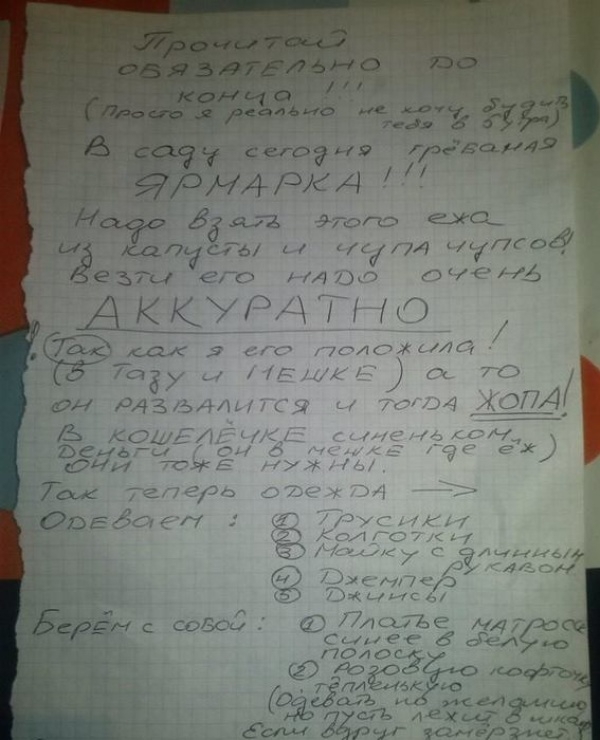 Прочитай
ОБЯЗАТЕЛЬНО ДО
КОНЦА !!!
(Просто я реально не хочу будить
тебя в 6 утра)
В саду сегодня грёбаная
ЯРМАРКА!!!
Надо взять этого ежа
из капусты и чупа чупсов!
Везти его надо очень
АККУРАТНО
! Так как я его положила!
(В тазу и МЕШКЕ) а то
он развалится и тогда ЖОПА!
В кошелёчке синеньком
деньги (он в мешке где ёж)
они тоже нужны.
Так теперь одежда →
Одеваем: ① Трусики
② Колготки
③ Майку с длинным
рукавом
④ Джемпер
⑤ Джинсы
Берём с собой: ① Платье
синее в белую
полоску
② розовую кофточку
тёпленькую
(Одевать по желанию
но пусть лежит в
Если вдруг замёрзнет